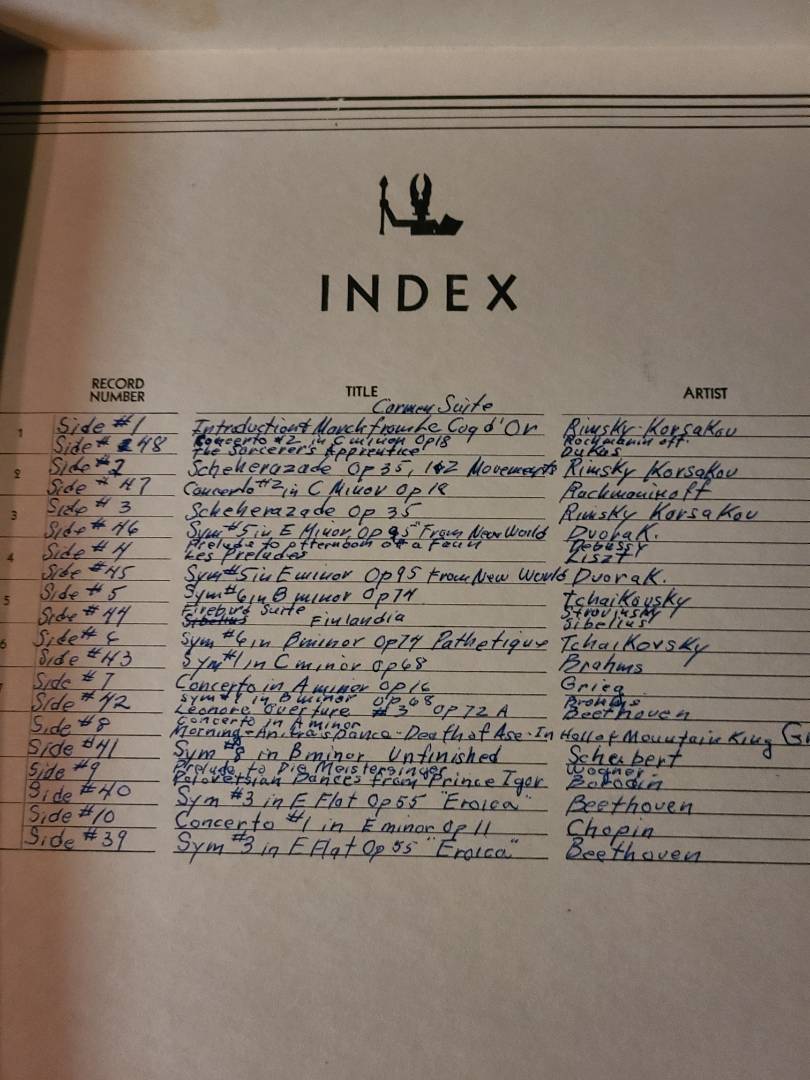 INDEX
RECORD NUMBER TITLE ARTIST
Carmen Suite
1 Side #1 Introduction & March from Le Coq d'Or Rimsky-Korsakov
Side #48 Concerto #2 in C minor Op18 Rachmaninoff
The Sorcerer's Apprentice Dukas
2 Side #2 Scheherazade Op 35, 1&2 Movements Rimsky Korsakov
Side #47 Concerto #2 in C Minor Op 18 Rachmaninoff
3 Side #3 Scheherazade Op 35 Rimsky Korsakov
Side #46 Sym #5 in E Minor Op 95 "From New World Dvorak.
Prelude to afternoon of a Faun Debussy
4 Side #4 Les Preludes Liszt
Side #45 Sym #5 in E minor Op 95 From New World Dvorak.
5 Side #5 Sym #6 in B minor Op 74 Tchaikovsky
Firebird Suite Stravinsky
Side #44 Sibelius Finlandia Sibelius
6 Side #6 Sym #6 in B minor Op 74 Pathetique Tchaikovsky
Side #43 Sym #1 in C minor Op 68 Brahms
Side #7 Concerto in A minor Op 16 Grieg
Sym #1 in B minor Op 68 Brahms
Side #42 Leonore Overture #3 Op 72 A Beethoven
Concerto in A minor
Side #8 Morning-Anitra's Dance-Death of Ase-In Hall of Mountain King
Side #41 Sym #8 in B minor Unfinished Schubert
Prelude to Die Meistersinger Wagner
Side #9 Polovetsian Dances from Prince Igor Borodin
Side #40 Sym #3 in E Flat Op 55 "Eroica" Beethoven
Side #10 Concerto #1 in E minor Op 11 Chopin
Side #39 Sym #3 in E Flat Op 55 "Eroica" Beethoven